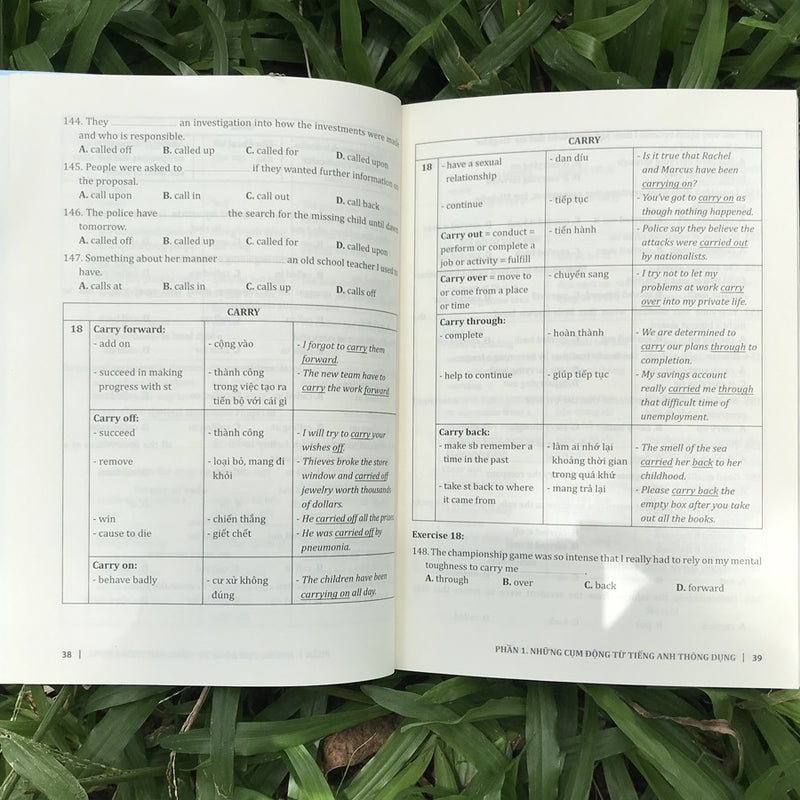 144. They ________ an investigation into how the investments were made
and who is responsible.
A. called off B. called up C. called for D. called upon
145. People were asked to ________ if they wanted further information on
the proposal.
A. call upon B. call in C. call out D. call back
146. The police have ________ the search for the missing child until dawn
tomorrow.
A. called off B. called up C. called for D. called upon
147. Something about her manner ________ an old school teacher I used to
have.
A. calls at B. calls in C. calls up D. calls off
CARRY
18 Carry forward:
- add on - cộng vào - I forgot to carry them
forward.
- succeed in making - thành công - The new team have to
progress with st trong việc tạo ra carry the work forward.
tiến bộ với cái gì
Carry off:
- succeed - thành công - I will try to carry your
wishes off.
- remove - loại bỏ, mang đi - Thieves broke the store
khỏi window and carried off
jewelry worth thousands
of dollars.
- win - chiến thắng - He carried off all the prizes.
- cause to die - giết chết - He was carried off by
pneumonia.
Carry on:
- behave badly - cư xử không - The children have been
đúng carrying on all day.
38 |
CARRY
18 - have a sexual - dan díu - Is it true that Rachel
relationship and Marcus have been
carrying on?
- continue - tiếp tục - You've got to carry on as
though nothing happened.
Carry out = conduct = - tiến hành - Police say they believe the
perform or complete a attacks were carried out
job or activity = fulfill by nationalists.
Carry over = move to - chuyển sang - I try not to let my
or come from a place problems at work carry
or time over into my private life.
Carry through:
- complete - hoàn thành - We are determined to
carry our plans through to
completion.
- help to continue - giúp tiếp tục - My savings account
really carried me through
that difficult time of
unemployment.
Carry back:
- make sb remember a - làm ai nhớ lại - The smell of the sea
time in the past khoảng thời gian carried her back to her
trong quá khứ childhood.
- take st back to where - mang trả lại - Please carry back the
it came from empty box after you take
out all the books.
Exercise 18:
148. The championship game was so intense that I really had to rely on my mental
toughness to carry me ________.
A. through B. over C. back D. forward
PHẦN 1. NHỮNG CỤM ĐỘNG TỪ TIẾNG ANH THÔNG DỤNG | 39